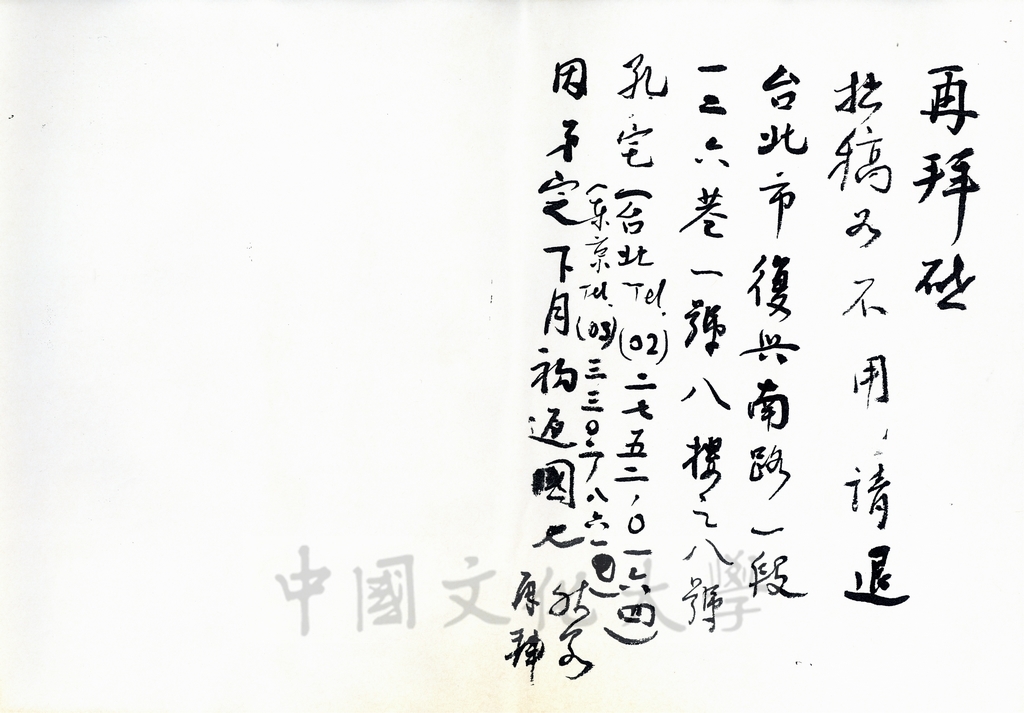 再拜啟
拙稿若不用，請退
台北市復興南路一段
一二六巷一號八樓之八號
孔宅（台北Tel.(02)二七五二，０一六四）
（東京Tel.(03)三三０八六一
因弟定下月初返國也
中國文化大學